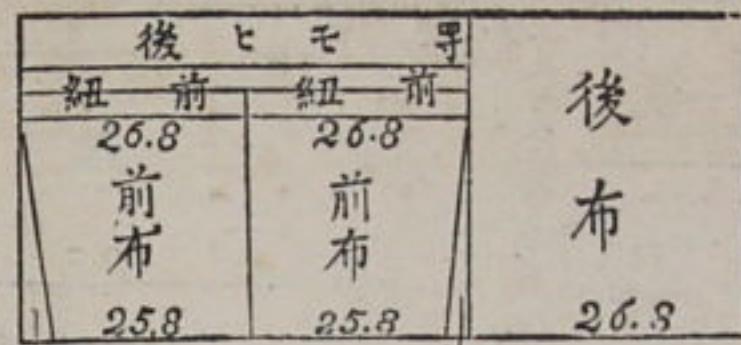 後ヒモ
紐前
紐前
26.8
26.8
前布
前布
25.8
25.8
後布
26.8